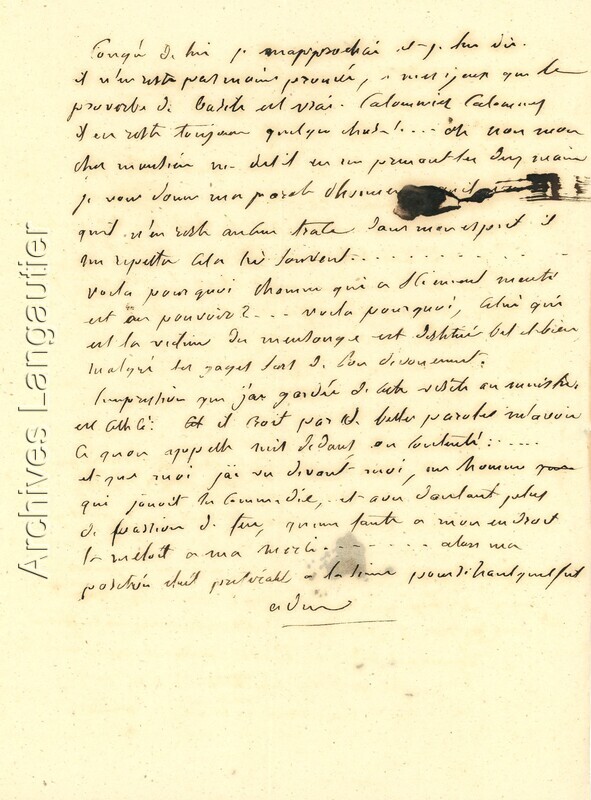 Congé de lui je m'approchai et je lui dis.
il n'en reste pas moins prouvé, a mes yeux que le
proverbe de basile est vrai. Calomniez Calomniez
il en reste toujours quelque chose!.... oh non mon
cher monsieur me dit il en me prenant les deux mains
je vous donne ma parole d'honneur qu'il
qu'il n'en reste aucune trace dans mon esprit il
me repetta cela très souvent..........
voila pourquoi l'homme qui a menti
est au pouvoir?... voila pourquoi, celui qui
est la victime du mensonge est destitué bel et bien
malgré les gages de son devouement.
L'impression que j'ai gardée de cette visite au ministère
est celle ci: et il croit par de belles paroles m'avoir
ce qu'on appelle mit dedans ou contenté:.....
et que moi j'ai vu devant moi, un homme
qui jouoit la commedie, et avec d'autant plus
de passion de feu, qu'une faute a mon endroit
le metoit a ma merci.......... alors ma
position etait préférable a la sienne pour si haut que fut

Archives Langautier